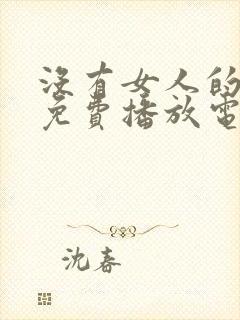 沒有女人的
免費播放電
沈春